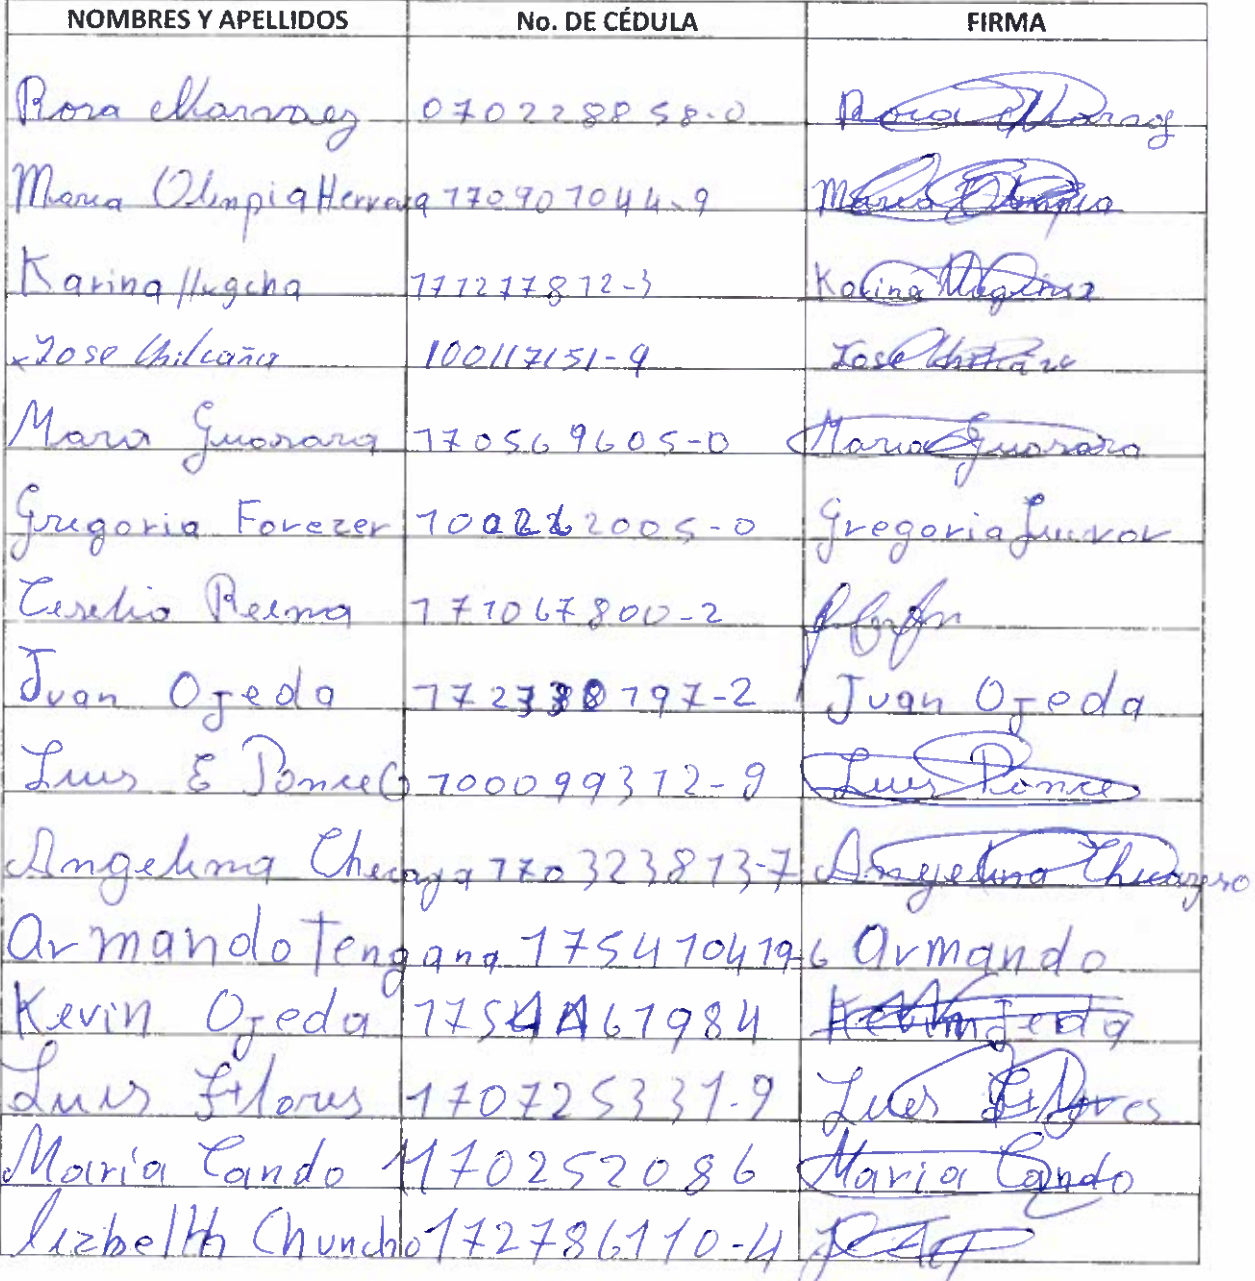 NOMBRES Y APELLIDOS No. DE CÉDULA FIRMA
Rosa Narvaez 070228858-0 Rosa Narvaez
Maria Olimpia Herrera 170907044-9 Maria Olimpia
Karina 171217812-3 Karina
Jose Chilcañar 100117151-9 Jose
Maria Guarara 170569605-0 Maria Guarara
Gregoria Forezer 2005-0 Gregoria
Reina 171067800-2
Juan Ojeda 172 197-2 Juan Ojeda
Luis E Ponce G 100099312-9 Luis Ponce
Angelina 170323813-7 Angelina
Armando Tengana 175410419-6 Armando
Kevin Ojeda 1754461984 Kevin Ojeda
Luis Flores 170725331-9 Luis Flores
María Cando 170252086 María Cando
Lizbeth Chuncho 172786110-4